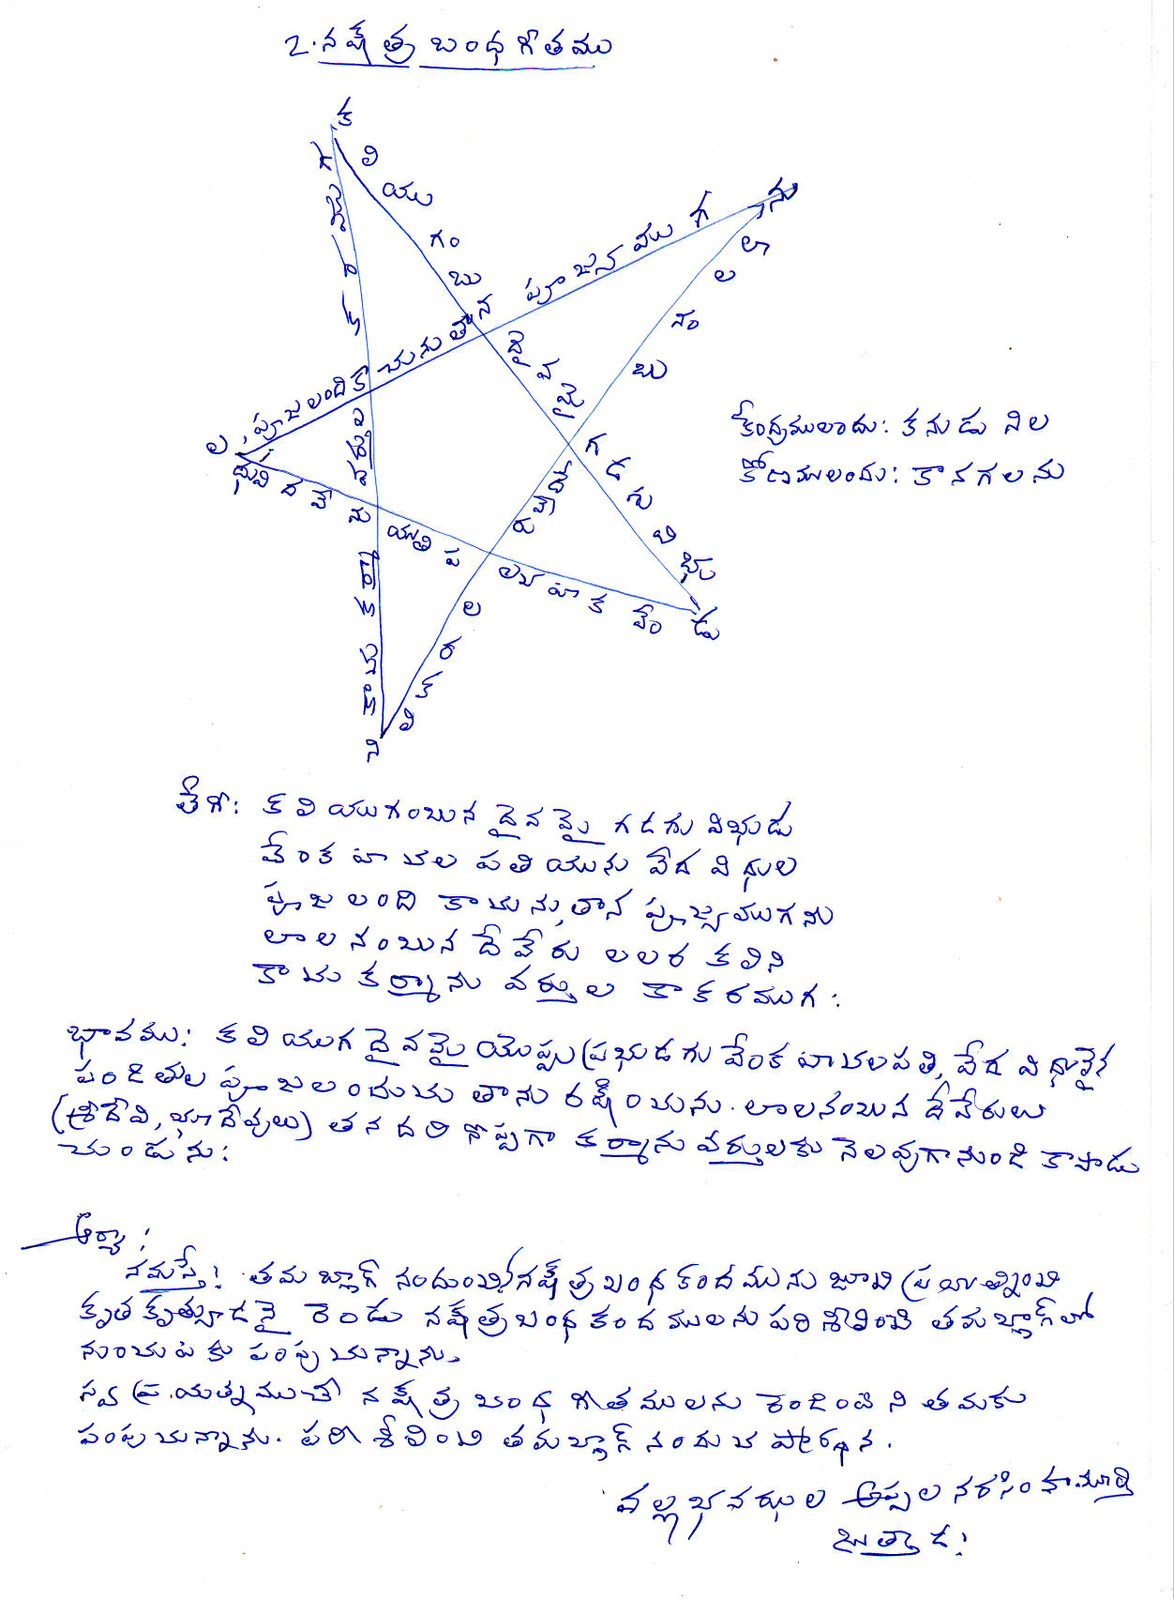 2. నక్షత్ర బంధ గీతము
క లి యు గం బు న దై వ మై గ డ గు వి భు డు
వేం క టా చ ల ప తి యు ను వే ద వి ధు ల
పూ జ లంది కా చు ను తా న పూ జన ము గ ను
లా ల నం బు న దే వే రు ల ల ర క లి ని
కా చు క ర్మా ను వర్తు ల కా క ర ము గ
కేంద్రములందు: కనుడు నిల
కోణములందు: కానగలను
తేగీ: కలియుగంబున దైవమై గడగు విభుడు
వేంకటాచలపతియును వేద విధుల
పూజలంది కాచును, తాన పూజ్యముగను
లాలనంబున దేవేరు లలర కలిని
కాచు కర్మాను వర్తుల కాకరముగ:
భావము: కలియుగ దైవమై యొప్పు ప్రభుడగు వేంకటాచలపతి, వేద విధులైన
పండితుల పూజలందుచు తాను రక్షించును. లాలనంబున దేవేరులు
(శ్రీదేవి, భూదేవులు) తన దరి నొప్పగా కర్మాను వర్తులకు నెలవుగానుండి కాపాడు
చుండును:
ఆర్యా:
నమస్తే! తమ బ్లాగ్ నందుంచిన నక్షత్ర బంధ కందమును జూచి ప్రయత్నించి
కృత కృత్యుడనై రెండు నక్షత్రబంధ కందములను పరిశీలించి తమబ్లాగ్ లో
నుంచుటకు పంపుచున్నాను.
స్వ ప్రయత్నముచే నక్షత్ర బంధ గీతములను రెండింటిని తమకు
పంపుచున్నాను. పరిశీలించి తమబ్లాగ్ నందుచ ప్రార్థన.
వల్లభవఝల అప్పల నరసింహమూర్తి
జుత్తాడ: